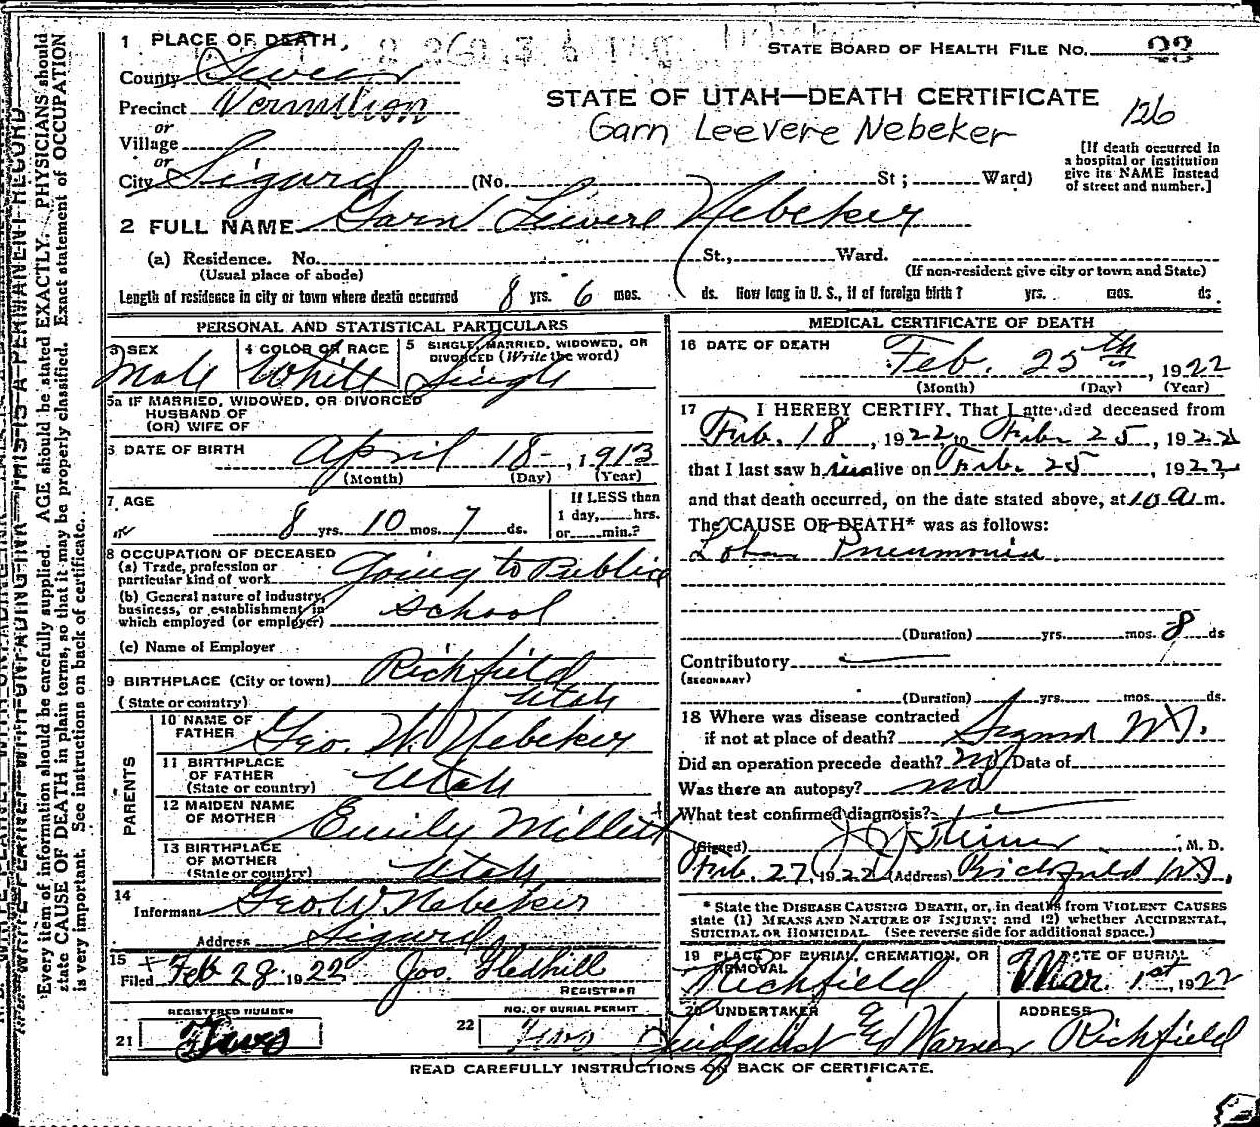 1 PLACE OF DEATH,
STATE BOARD OF HEALTH FILE NO. 23
County Sevier
Precinct Vermillion
STATE OF UTAH—DEATH CERTIFICATE
126
or
Garn Leevere Nebeker
Village
or
City Sigurd (No. St; Ward)
[If death occurred in
a hospital or institution
give its NAME instead
of street and number.]
2 FULL NAME Garn Leevere Nebeker
(a) Residence. No. St., Ward.
(Usual place of abode)
(If non-resident give city or town and State)
Length of residence in city or town where death occurred 8 yrs. 6 mos. ds. How long in U. S., if of foreign birth? yrs. mos. ds.
PERSONAL AND STATISTICAL PARTICULARS
3 SEX
Male
4 COLOR OR RACE
White
5 SINGLE, MARRIED, WIDOWED, OR
DIVORCED (Write the word)
Single
5a IF MARRIED, WIDOWED, OR DIVORCED
HUSBAND OF
(OR) WIFE OF
6 DATE OF BIRTH April 18-, 1913
(Month) (Day) (Year)
7 AGE
8 yrs. 10 mos. 7 ds.
If LESS than
1 day, hrs.
or min.?
8 OCCUPATION OF DECEASED
(a) Trade, profession or
particular kind of work Going to Public
(b) General nature of industry,
business, or establishment in
which employed (or employer) School
(c) Name of Employer
9 BIRTHPLACE (City or town) Richfield
(State or country) Utah
PARENTS
10 NAME OF
FATHER Geo. W. Nebeker
11 BIRTHPLACE
OF FATHER
(State or country) Utah
12 MAIDEN NAME
OF MOTHER Emily Millett
13 BIRTHPLACE
OF MOTHER
(State or country) Utah
14
Informant Geo. W. Nebeker
Address Sigurd
15
Filed Feb 28 1922 Jos. Gledhill
REGISTRAR
REGISTERED NUMBER
21 Two
NO. OF BURIAL PERMIT
22 Two
MEDICAL CERTIFICATE OF DEATH
16 DATE OF DEATH
Feb. 25th, 1922
(Month) (Day) (Year)
17 I HEREBY CERTIFY, That I attended deceased from
Feb. 18, 1922 to Feb 25, 1922
that I last saw him alive on Feb 25, 1922,
and that death occurred, on the date stated above, at 10 a.m.
The CAUSE OF DEATH* was as follows:
Lobar Pneumonia
(Duration) yrs. mos. 8 ds
Contributory
(SECONDARY)
(Duration) yrs. mos. ds.
18 Where was disease contracted
if not at place of death? Sigurd Ut.
Did an operation precede death? no Date of
Was there an autopsy? no
What test confirmed diagnosis?
(Signed) , M. D.
Feb. 27, 1922 (Address) Richfield Ut.
* State the DISEASE CAUSING DEATH, or, in deaths from VIOLENT CAUSES
state (1) MEANS AND NATURE OF INJURY; and (2) whether ACCIDENTAL,
SUICIDAL OR HOMICIDAL. (See reverse side for additional space.)
19 PLACE OF BURIAL, CREMATION, OR
REMOVAL
Richfield
DATE OF BURIAL
Mar. 1st, 1922
20 UNDERTAKER
Ed Warner
ADDRESS
Richfield
READ CAREFULLY INSTRUCTIONS OF BACK OF CERTIFICATE.
WRITE PLAINLY WITH UNFADING INK—THIS IS A PERMANENT RECORD
Every item of information should be carefully supplied. AGE should be stated EXACTLY. PHYSICIANS should
state CAUSE OF DEATH in plain terms, so that it may be properly classified. Exact statement of OCCUPATION
is very important. See instructions on back of certificate.